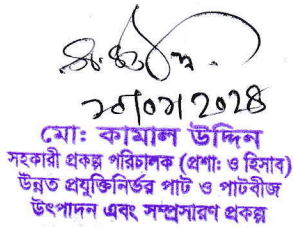 মো: কামাল উদ্দিন
সহকারী প্রকল্প পরিচালক (প্রশা: ও হিসাব)
উন্নত প্রযুক্তিনির্ভর পাট ও পাটবীজ
উৎপাদন এবং সম্প্রসারণ প্রকল্প